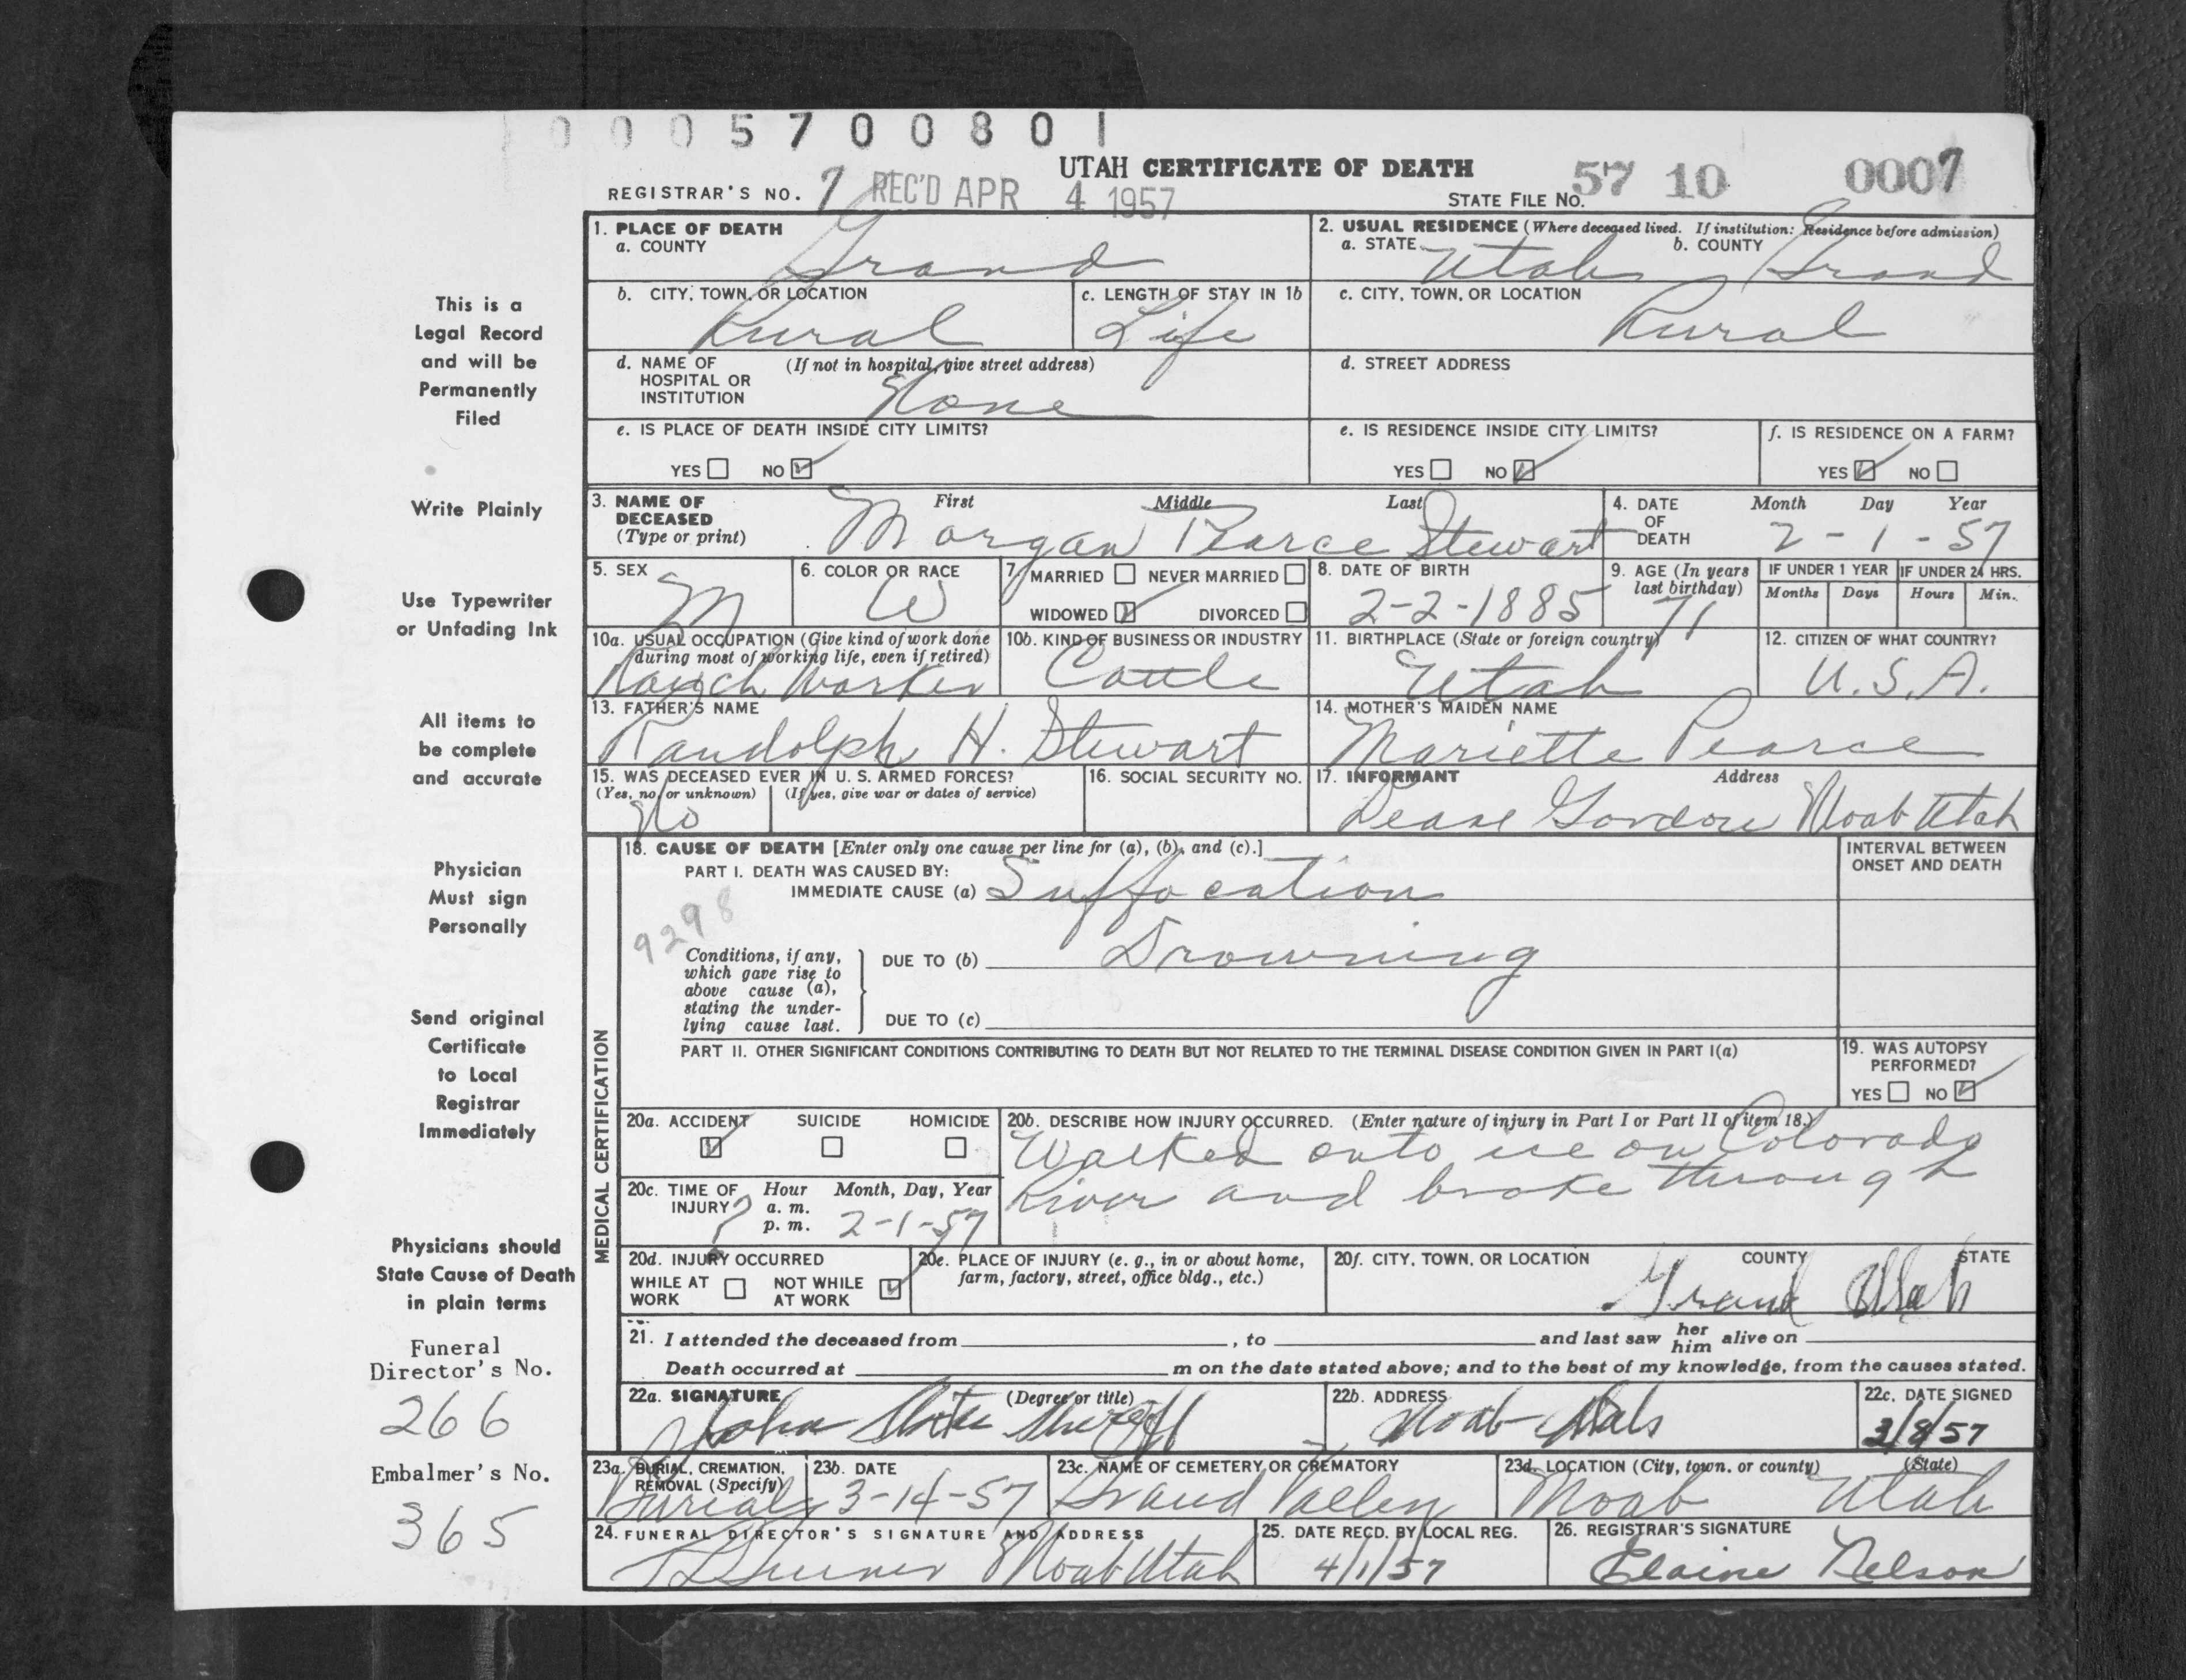 0005700801
UTAH CERTIFICATE OF DEATH
REGISTRAR'S NO. 7 REC'D APR 4 1957 STATE FILE NO. 57 10 0007
1. PLACE OF DEATH
a. COUNTY Grand
2. USUAL RESIDENCE (Where deceased lived. If institution: Residence before admission)
a. STATE Utah b. COUNTY Grand
b. CITY, TOWN, OR LOCATION Rural
c. LENGTH OF STAY IN 1b Life
c. CITY, TOWN, OR LOCATION Rural
d. NAME OF HOSPITAL OR INSTITUTION (If not in hospital, give street address) None
d. STREET ADDRESS
e. IS PLACE OF DEATH INSIDE CITY LIMITS?
YES NO ✓
e. IS RESIDENCE INSIDE CITY LIMITS?
YES NO ✓
f. IS RESIDENCE ON A FARM?
YES ✓ NO
3. NAME OF DECEASED (Type or print) First Middle Last
Morgan Pearce Stewart
4. DATE OF DEATH Month Day Year
2-1-57
5. SEX M
6. COLOR OR RACE W
7. MARRIED NEVER MARRIED
WIDOWED ✓ DIVORCED
8. DATE OF BIRTH 2-2-1885
9. AGE (In years last birthday) 71
IF UNDER 1 YEAR Months Days
IF UNDER 24 HRS. Hours Min.
10a. USUAL OCCUPATION (Give kind of work done during most of working life, even if retired)
Ranch Worker
10b. KIND OF BUSINESS OR INDUSTRY
Cattle
11. BIRTHPLACE (State or foreign country)
Utah
12. CITIZEN OF WHAT COUNTRY?
U.S.A.
13. FATHER'S NAME
Randolph H. Stewart
14. MOTHER'S MAIDEN NAME
Mariette Pearce
15. WAS DECEASED EVER IN U. S. ARMED FORCES?
(Yes, no, or unknown) (If yes, give war or dates of service)
No
16. SOCIAL SECURITY NO.
17. INFORMANT Address
Gordon Moab Utah
MEDICAL CERTIFICATION
18. CAUSE OF DEATH [Enter only one cause per line for (a), (b), and (c).]
PART I. DEATH WAS CAUSED BY:
IMMEDIATE CAUSE (a) Suffocation
9298
Conditions, if any, which gave rise to above cause (a), stating the underlying cause last.
DUE TO (b) Drowning
DUE TO (c)
INTERVAL BETWEEN ONSET AND DEATH
PART II. OTHER SIGNIFICANT CONDITIONS CONTRIBUTING TO DEATH BUT NOT RELATED TO THE TERMINAL DISEASE CONDITION GIVEN IN PART I(a)
19. WAS AUTOPSY PERFORMED?
YES NO ✓
20a. ACCIDENT ✓ SUICIDE HOMICIDE
20b. DESCRIBE HOW INJURY OCCURRED. (Enter nature of injury in Part I or Part II of item 18.)
Walked onto ice on Colorado
River and broke through
20c. TIME OF INJURY Hour Month, Day, Year
? a. m. p. m. 2-1-57
20d. INJURY OCCURRED
WHILE AT WORK NOT WHILE AT WORK ✓
20e. PLACE OF INJURY (e. g., in or about home, farm, factory, street, office bldg., etc.)
20f. CITY, TOWN, OR LOCATION COUNTY STATE
Grand Utah
21. I attended the deceased from , to and last saw her him alive on
Death occurred at m on the date stated above; and to the best of my knowledge, from the causes stated.
22a. SIGNATURE (Degree or title)
John Sheriff
22b. ADDRESS
Moab
22c. DATE SIGNED
3/8/57
23a. BURIAL, CREMATION, REMOVAL (Specify)
Burial
23b. DATE
3-14-57
23c. NAME OF CEMETERY OR CREMATORY
Grand Valley
23d. LOCATION (City, town, or county) (State)
Moab Utah
24. FUNERAL DIRECTOR'S SIGNATURE AND ADDRESS
Moab Utah
25. DATE RECD. BY LOCAL REG.
4/1/57
26. REGISTRAR'S SIGNATURE
Elaine Nelson
This is a
Legal Record
and will be
Permanently
Filed
Write Plainly
Use Typewriter
or Unfading Ink
All items to
be complete
and accurate
Physician
Must sign
Personally
Send original
Certificate
to Local
Registrar
Immediately
Physicians should
State Cause of Death
in plain terms
Funeral
Director's No.
266
Embalmer's No.
365